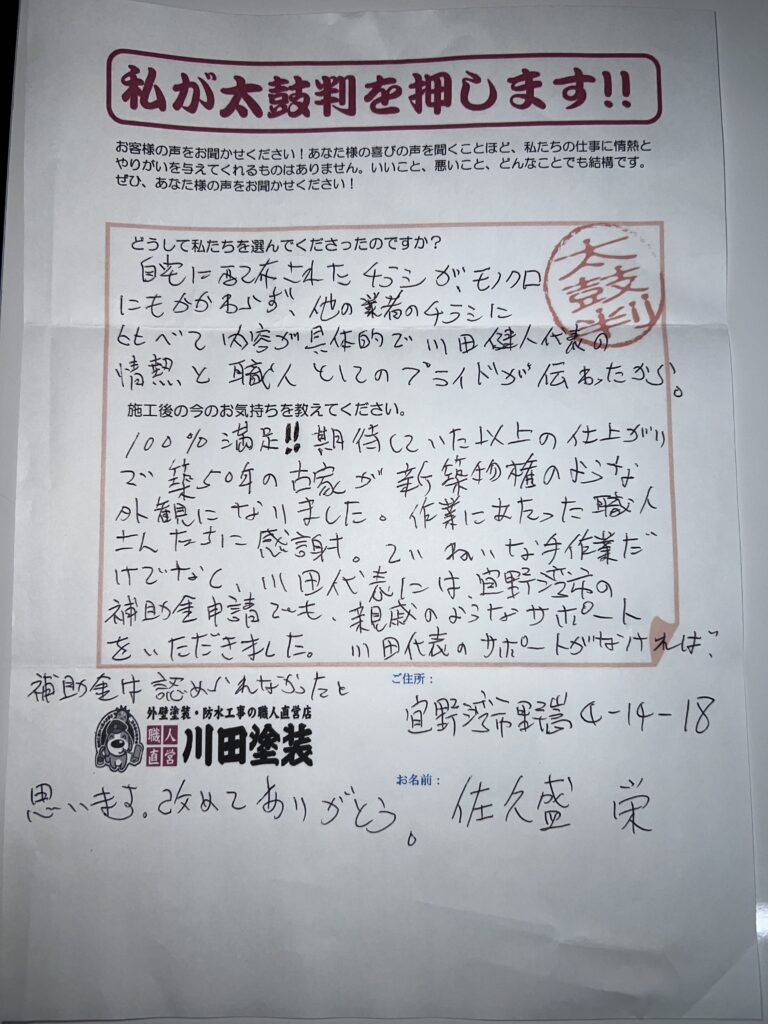 私が太鼓判を押します!!
お客様の声をお聞かせください！あなた様の喜びの声を聞くことほど、私たちの仕事に情熱と
やりがいを与えてくれるものはありません。いいこと、悪いこと、どんなことでも結構です。
ぜひ、あなた様の声をお聞かせください！
どうして私たちを選んでくださったのですか？
太鼓判
自宅に配布されたチラシが、モノクロ
にもかかわらず、他の業者のチラシに
比べて内容が具体的で川田健人代表の
情熱と職人としてのプライドが伝わったから。
施工後の今のお気持ちを教えてください。
100%満足!!期待していた以上の仕上がり
で築50年の古家が新築物権のような
外観になりました。作業に当たった職人
さんたちに感謝。ていねいな手作業だ
けでなく、川田代表には、宜野湾市の
補助金申請でも、親戚のようなサポート
をいただきました。川田代表のサポートがなければ、
補助金は認められなかったと
ご住所：
宜野湾市野嵩4-14-18
外壁塗装・防水工事の職人直営店
職人直営 川田塗装
思います。改めてありがとう。
お名前：
佐久盛 栄